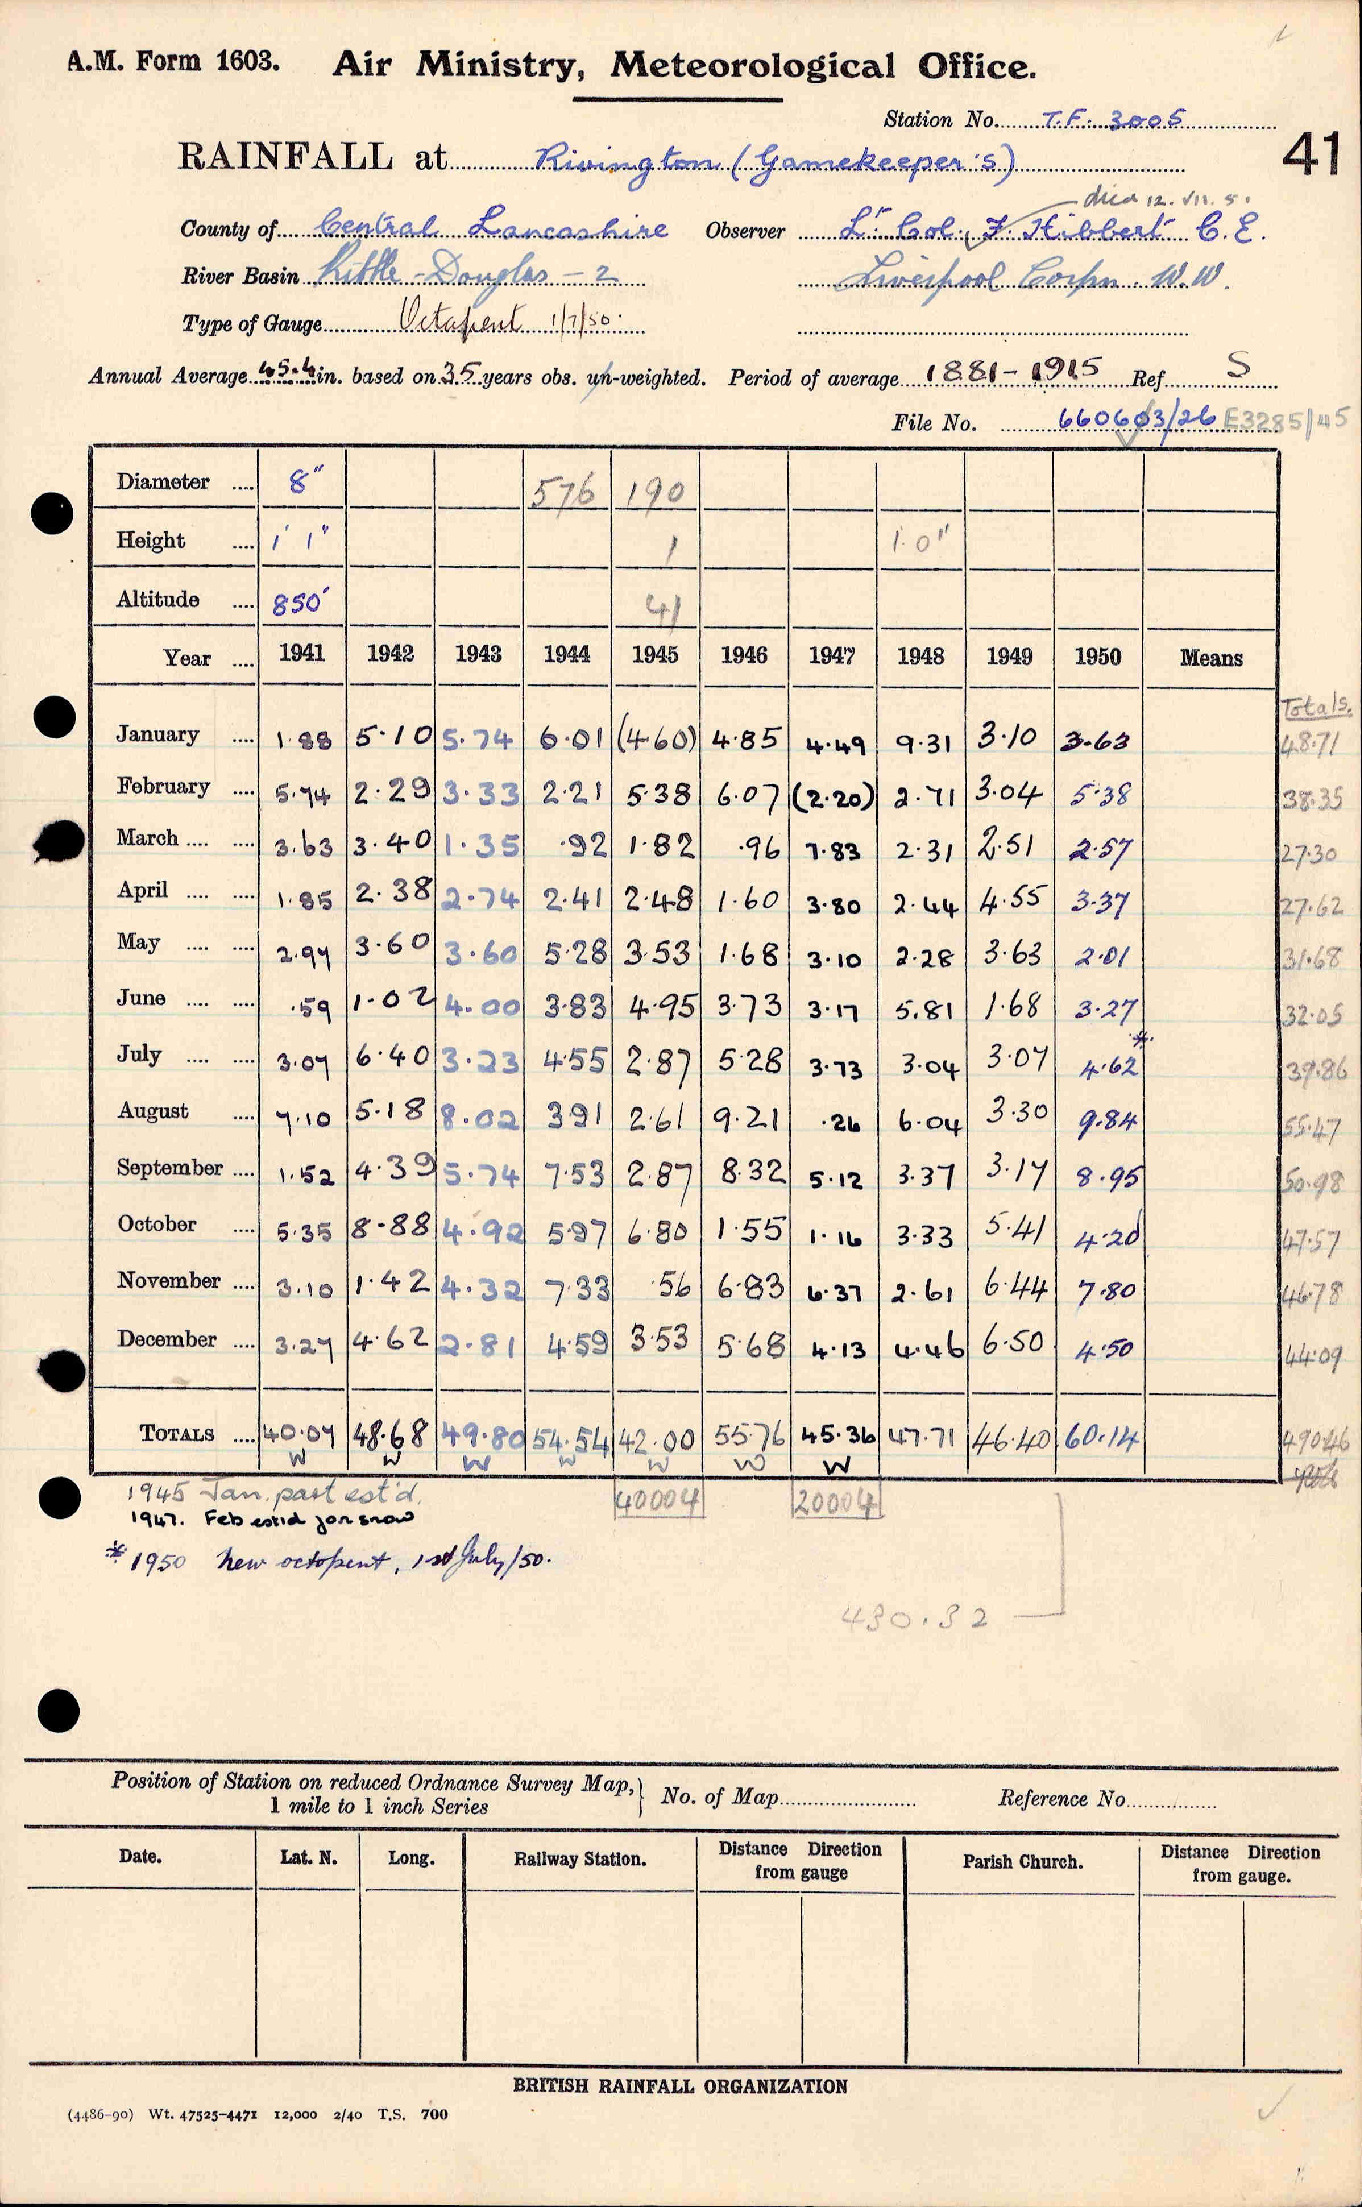 A.M. Form 1603. Air Ministry, Meteorological Office.
Station No. T.F. 3005
41
RAINFALL at Rivington (Gamekeeper's)
died 12. VII. 5.
County of Central Lancashire Observer Lt. Col. F. Hibbert C.E.
River Basin Ribble - Douglas - 2 Liverpool Corpn. W.W.
Type of Gauge Octapent 1/7/50.
Annual Average 45.4 in. based on 35 years obs. un-weighted. Period of average 1881 - 1915 Ref S
File No. 660603/26 E3285/45
Diameter 8" 576 190
Height 1' 1" 1 1.0"
Altitude 850' 41
Year 1941 1942 1943 1944 1945 1946 1947 1948 1949 1950 Means
Totals.
January 1.88 5.10 5.74 6.01 (4.60) 4.85 4.49 9.31 3.10 3.63 48.71
February 5.74 2.29 3.33 2.21 5.38 6.07 (2.20) 2.71 3.04 5.38 38.35
March 3.63 3.40 1.35 .92 1.82 .96 7.83 2.31 2.51 2.57 27.30
April 1.85 2.38 2.74 2.41 2.48 1.60 3.80 2.44 4.55 3.37 27.62
May 2.97 3.60 3.60 5.28 3.53 1.68 3.10 2.28 3.63 2.01 31.68
June .59 1.02 4.00 3.83 4.95 3.73 3.17 5.81 1.68 3.27 32.05
July 3.07 6.40 3.23 4.55 2.87 5.28 3.73 3.04 3.07 4.62 * 39.86
August 7.10 5.18 8.02 3.91 2.61 9.21 .26 6.04 3.30 9.84 55.47
September 1.52 4.39 5.74 7.53 2.87 8.32 5.12 3.37 3.17 8.95 50.98
October 5.35 8.88 4.92 5.97 6.80 1.55 1.16 3.33 5.41 4.20 47.57
November 3.10 1.42 4.32 7.33 .56 6.83 6.37 2.61 6.44 7.80 46.78
December 3.27 4.62 2.81 4.59 3.53 5.68 4.13 4.46 6.50 4.50 44.09
TOTALS 40.07 48.68 49.80 54.54 42.00 55.76 45.36 47.71 46.40 60.14 490.46
W W W W W W W
1945 Jan. part est'd. 40004 20004
1947. Feb estid for snow
* 1950 New octopent, 1st July/50.
430.32
Position of Station on reduced Ordnance Survey Map,
1 mile to 1 inch Series
No. of Map Reference No.
Date. Lat. N. Long. Railway Station. Distance Direction from gauge Parish Church. Distance Direction from gauge.
BRITISH RAINFALL ORGANIZATION
(4486-90) Wt. 47525-4471 12,000 2/40 T.S. 700